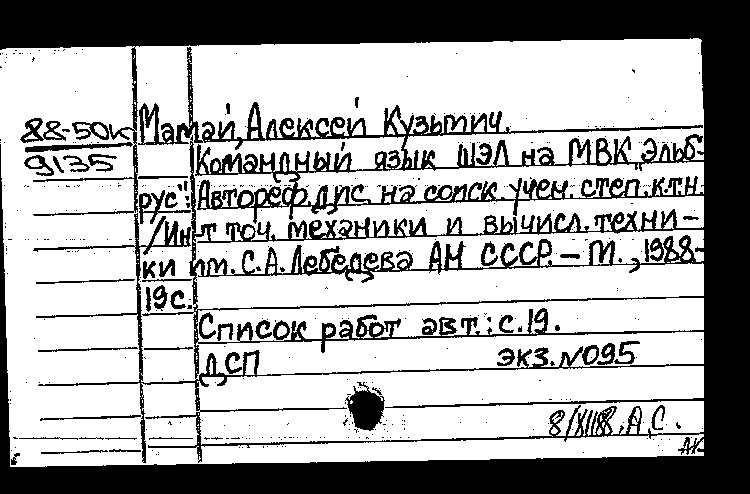 88-50к Мамай, Алексей Кузьмич.
9135 Командный язык ШЭЛ на МВК „Эльб-
рус": Автореф. дис. на соиск. учен. степ. к.т.н.
/Ин-т точ. механики и вычисл. техни-
ки им. С.А. Лебедева АН СССР. – М., 1988.-
19 с.
Список работ авт.: с. 19.
ДСП экз. №095
8/XII88. А.С.
АК